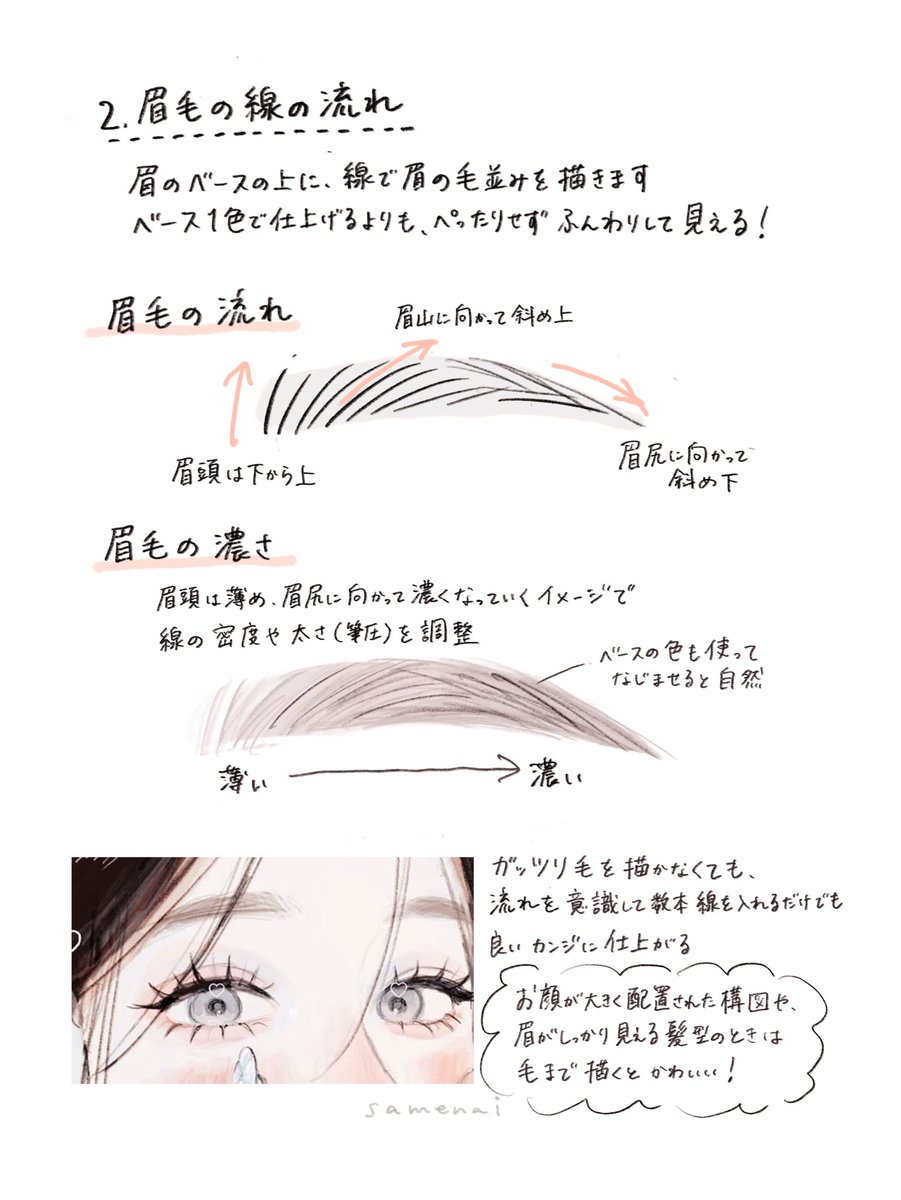 2. 眉毛の線の流れ
眉のベースの上に、線で眉の毛並みを描きます
ベース1色で仕上げるよりも、ぺったりせずふんわりして見える!
眉毛の流れ
眉山に向かって斜め上
眉頭は下から上
眉尻に向かって
斜め下
眉毛の濃さ
眉頭は薄め、眉尻に向かって濃くなっていくイメージで
線の密度や太さ(筆圧)を調整
ベースの色も使って
なじませると自然
薄い
濃い
ガッツリ毛を描かなくても、
流れを意識して数本線を入れるだけでも
良いカンジに仕上がる
お顔が大きく配置された構図や、
眉がしっかり見える髪型のときは
毛まで描くとかわいい!
samenai